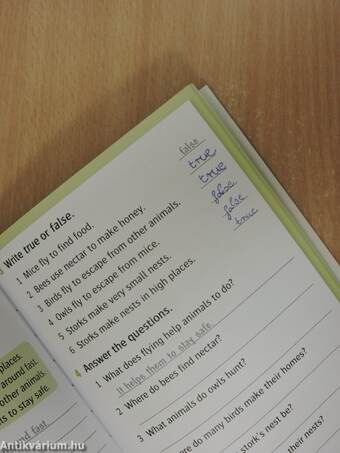 places.
around fast.
other animals.
ts to stay safe.
nd fast.
Write true or false.
1 Mice fly to find food. false
2 Bees use nectar to make honey. true
3 Birds fly to escape from other animals. true
4 Owls fly to escape from mice. false
5 Storks make very small nests. false
6 Storks make nests in high places. true
4 Answer the questions.
1 What does flying help animals to do?
It helps them to stay safe.
2 Where do bees find nectar?
3 What animals do owls hunt?
ere do many birds make their homes?
stork's nest be?
Antikvárium.hu